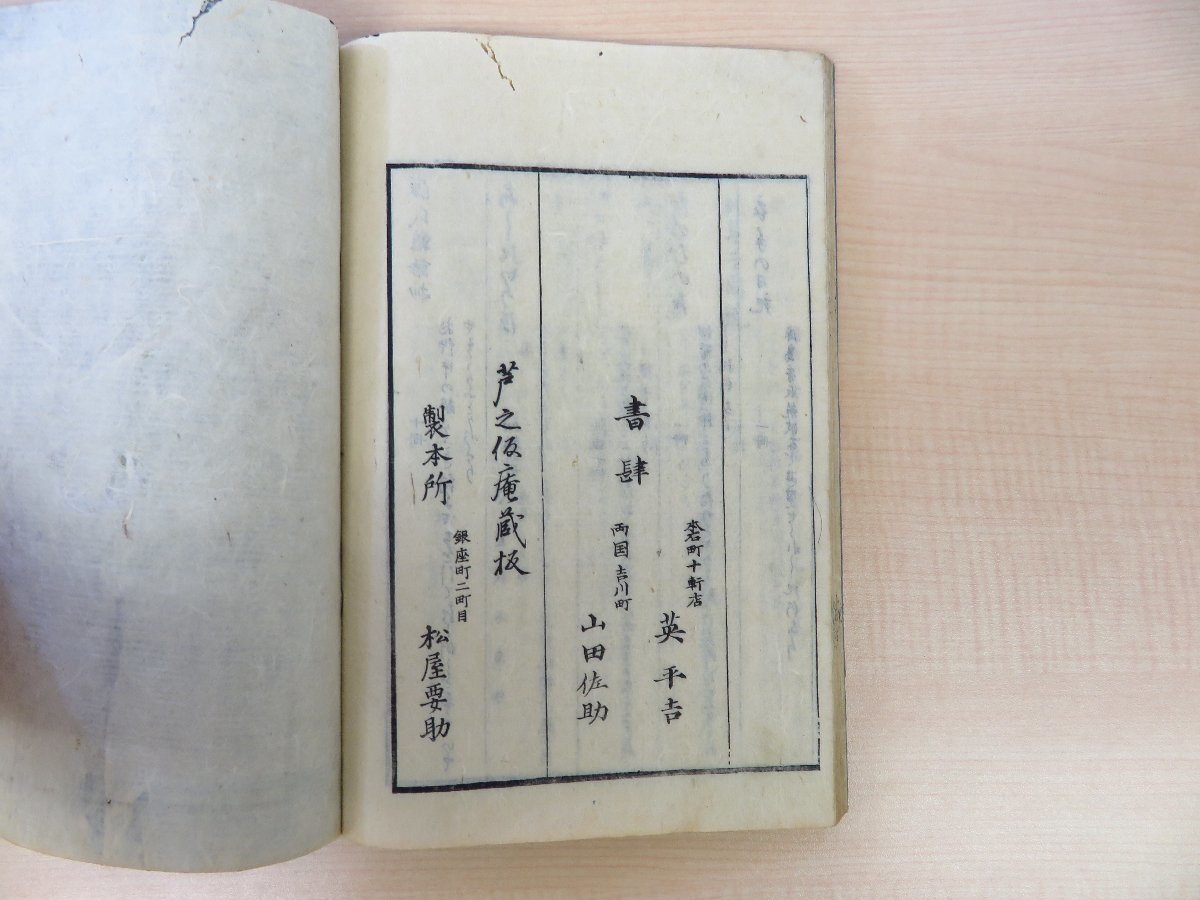 書肆
本石町十軒店
英平吉
両国吉川町
山田佐助
芦之仮庵蔵板
製本所
銀座町二町目
松屋要助